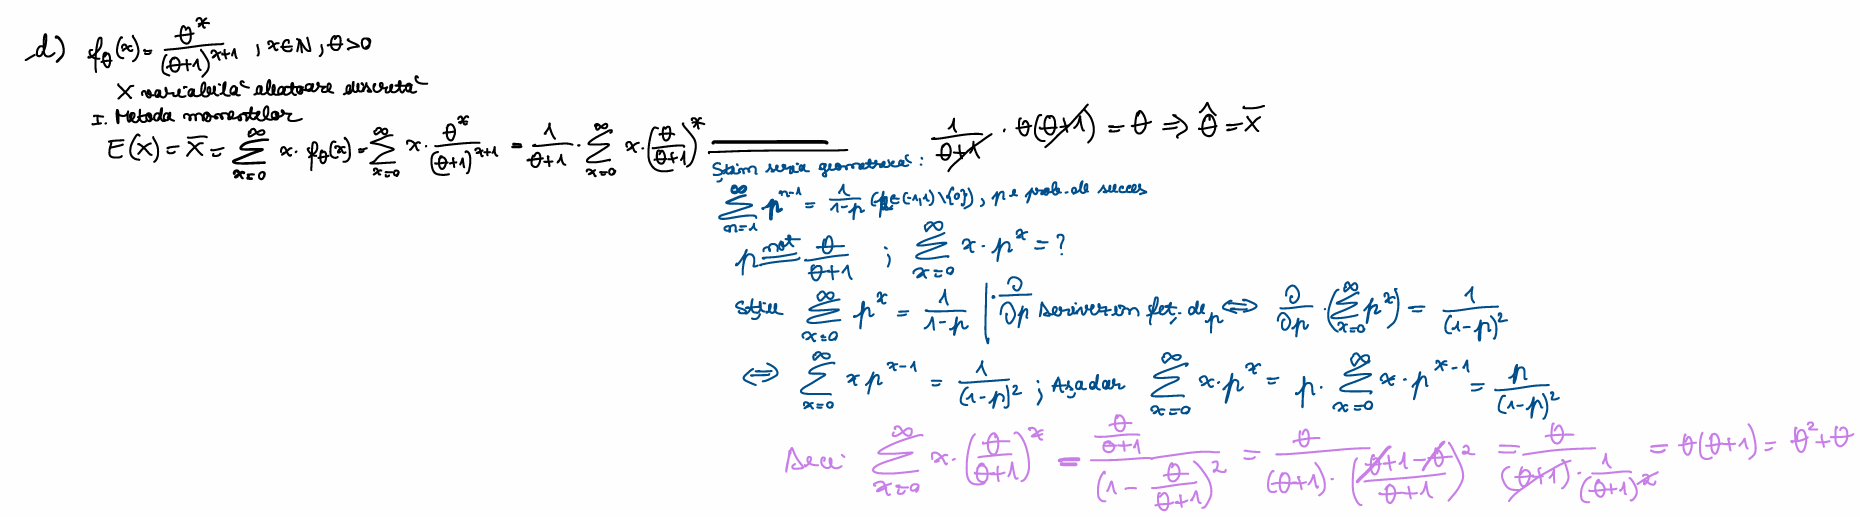 d) f_θ(x) = θ^x / (θ+1)^{x+1} ; x∈ℕ ; θ>0
X variabilă aleatoare discretă
I. Metoda momentelor
E(X) = X̄ = ∑_{x=0}^{∞} x · f_θ(x) = ∑_{x=0}^{∞} x · θ^x / (θ+1)^{x+1} = 1/(θ+1) · ∑_{x=0}^{∞} x · (θ/(θ+1))^x = 1/(θ+1) · θ(θ+1) = θ ⇒ θ̂ = X̄
Știm seria geometrică :
∑_{n=1}^{∞} p^{n-1} = 1/(1-p) (p∈(-1,1)\{0}) , p e prob. de succes
p not= θ/(θ+1) ; ∑_{x=0}^{∞} x · p^x = ?
Știu ∑_{x=0}^{∞} p^x = 1/(1-p) | · ∂/∂p derivez în fcț. de p ⇔ ∂/∂p · (∑_{x=0}^{∞} p^x) = 1/(1-p)²
⇔ ∑_{x=0}^{∞} x p^{x-1} = 1/(1-p)² ; Așadar ∑_{x=0}^{∞} x · p^x = p · ∑_{x=0}^{∞} x · p^{x-1} = p/(1-p)²
Deci: ∑_{x=0}^{∞} x · (θ/(θ+1))^x = (θ/(θ+1)) / (1 - θ/(θ+1))² = θ / ((θ+1) · ((θ+1-θ)/(θ+1))²) = θ / ((θ+1) · 1/(θ+1)²) = θ(θ+1) = θ²+θ